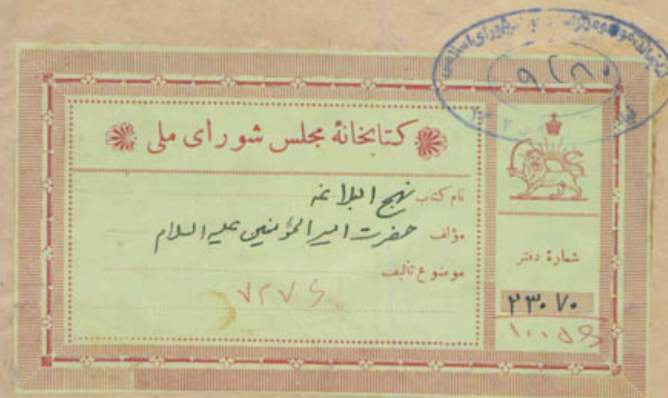 کتابخانهٔ مجلس شورای ملی
نام کتاب نهج البلاغه
مؤلف حضرت امیرالمؤمنین علیه السلام
موضوع تألیف
۷۲۷۶
شمارهٔ دفتر
۲۳۰۷۰
شورای اسلامی